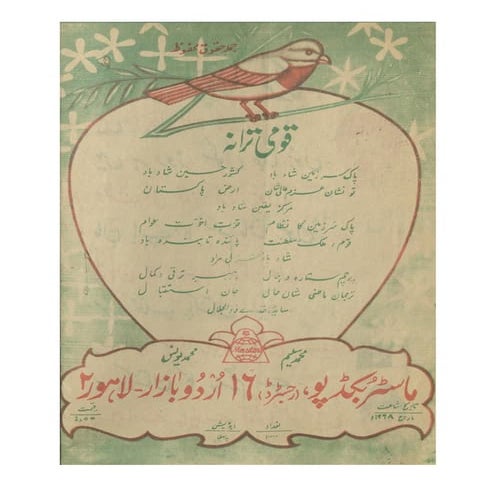 جملہ حقوق محفوظ
قومی ترانہ
پاک سرزمین شاد باد کشور حسین شاد باد
تو نشان عزم عالی شان ارض پاکستان
مرکز یقین شاد باد
پاک سرزمین کا نظام قوت اخوت عوام
قوم، ملک سلطنت پائندہ تابندہ باد
شاد باد منزل مراد
پرچم ستارہ و ہلال رہبر ترقی و کمال
ترجمان ماضی شان حال جان استقبال
سایۂ خدائے ذوالجلال
محمد سلیم محمد یونس
ماسٹر بکڈپو، (رجسٹرڈ) ۱۶ اُردو بازار۔ لاہور ۲
تاریخ اشاعت تعداد ایڈیشن قیمت
مارچ ۱۹۶۸ء